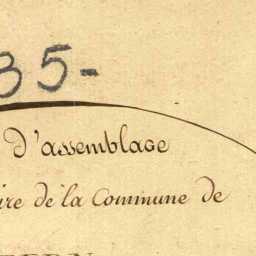 35-
d'assemblage
ire de la Commune de